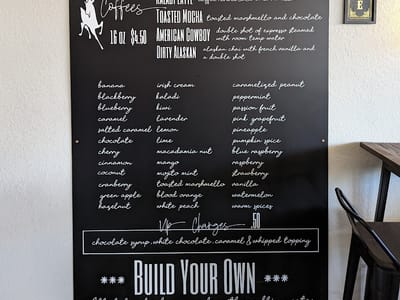 Coffees
16 oz $4.50
Toasted Mocha toasted marshmello and chocolate
American Cowboy double shot of espresso steamed
with room temp water
Dirty Alaskan alaskan chai with french vanilla and
a double shot
banana irish cream caramelized peanut
blackberry kaladi peppermint
blueberry kiwi passion fruit
caramel lavender pink grapefruit
salted caramel lemon pineapple
chocolate lime pumpkin spice
cherry macadamia nut blue raspberry
cinnamon mango raspberry
coconut mojito mint strawberry
cranberry toasted marshmello vanilla
green apple blood orange watermelon
hazelnut white peach warm spices
Up Charges .50
chocolate syrup, white chocolate, caramel & whipped topping
*** Build Your Own ***
E